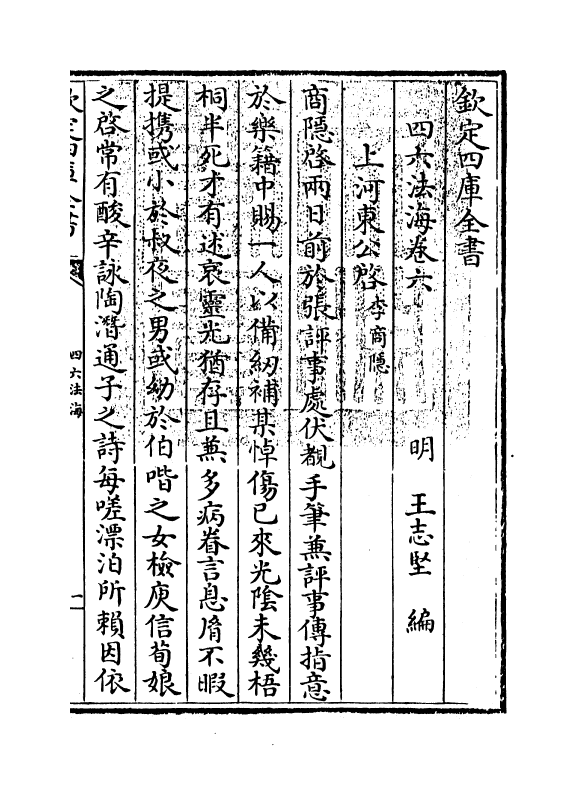 欽定四庫全書
四六法海卷六
明 王志堅 編
上河東公啓 李商隱
商隱啓兩日前於張評事處伏覩手筆兼評事傳指意
於樂籍中賜一人以備紉補某悼傷已來光陰未幾梧
桐半死才有述哀靈光猶存且兼多病眷言息𦙍不暇
提攜或小於叔夜之男或幼於伯喈之女檢庾信荀娘
之啓常有酸辛詠陶潛通子之詩每嗟漂泊所賴因依
欽定四庫全書
四六法海